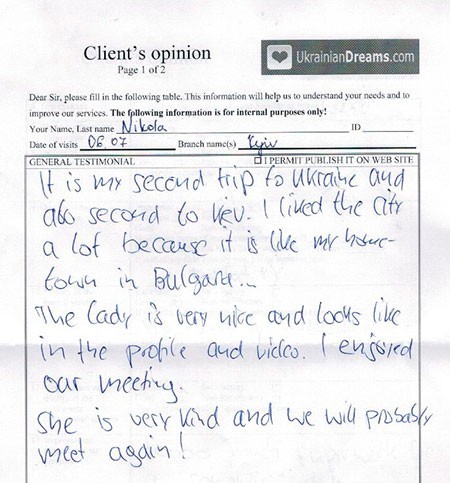 Client's opinion
Page 1 of 2
UkrainianDreams.com
Dear Sir, please fill in the following table. This information will help us to understand your needs and to
improve our services. The following information is for internal purposes only!
Your Name, Last name Nikola ID
Date of visits 06.07 Branch name(s) Kyiv
GENERAL TESTIMONIAL I PERMIT PUBLISH IT ON WEB SITE
It is my second trip to Ukraine and
also second to Kiev. I liked the city
a lot because it is like my home-
town in Bulgaria...
The lady is very nice and looks like
in the profile and video. I enjoyed
our meeting.
She is very kind and we will probably
meet again!